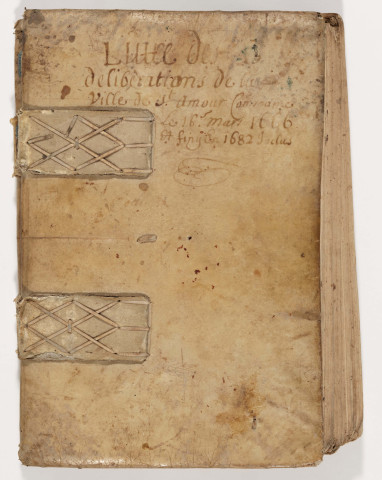 Livre des
deliberations de la
Ville de St Amour Commancé
Le 16e Mars 1666
Et finy en 1682 Inclus